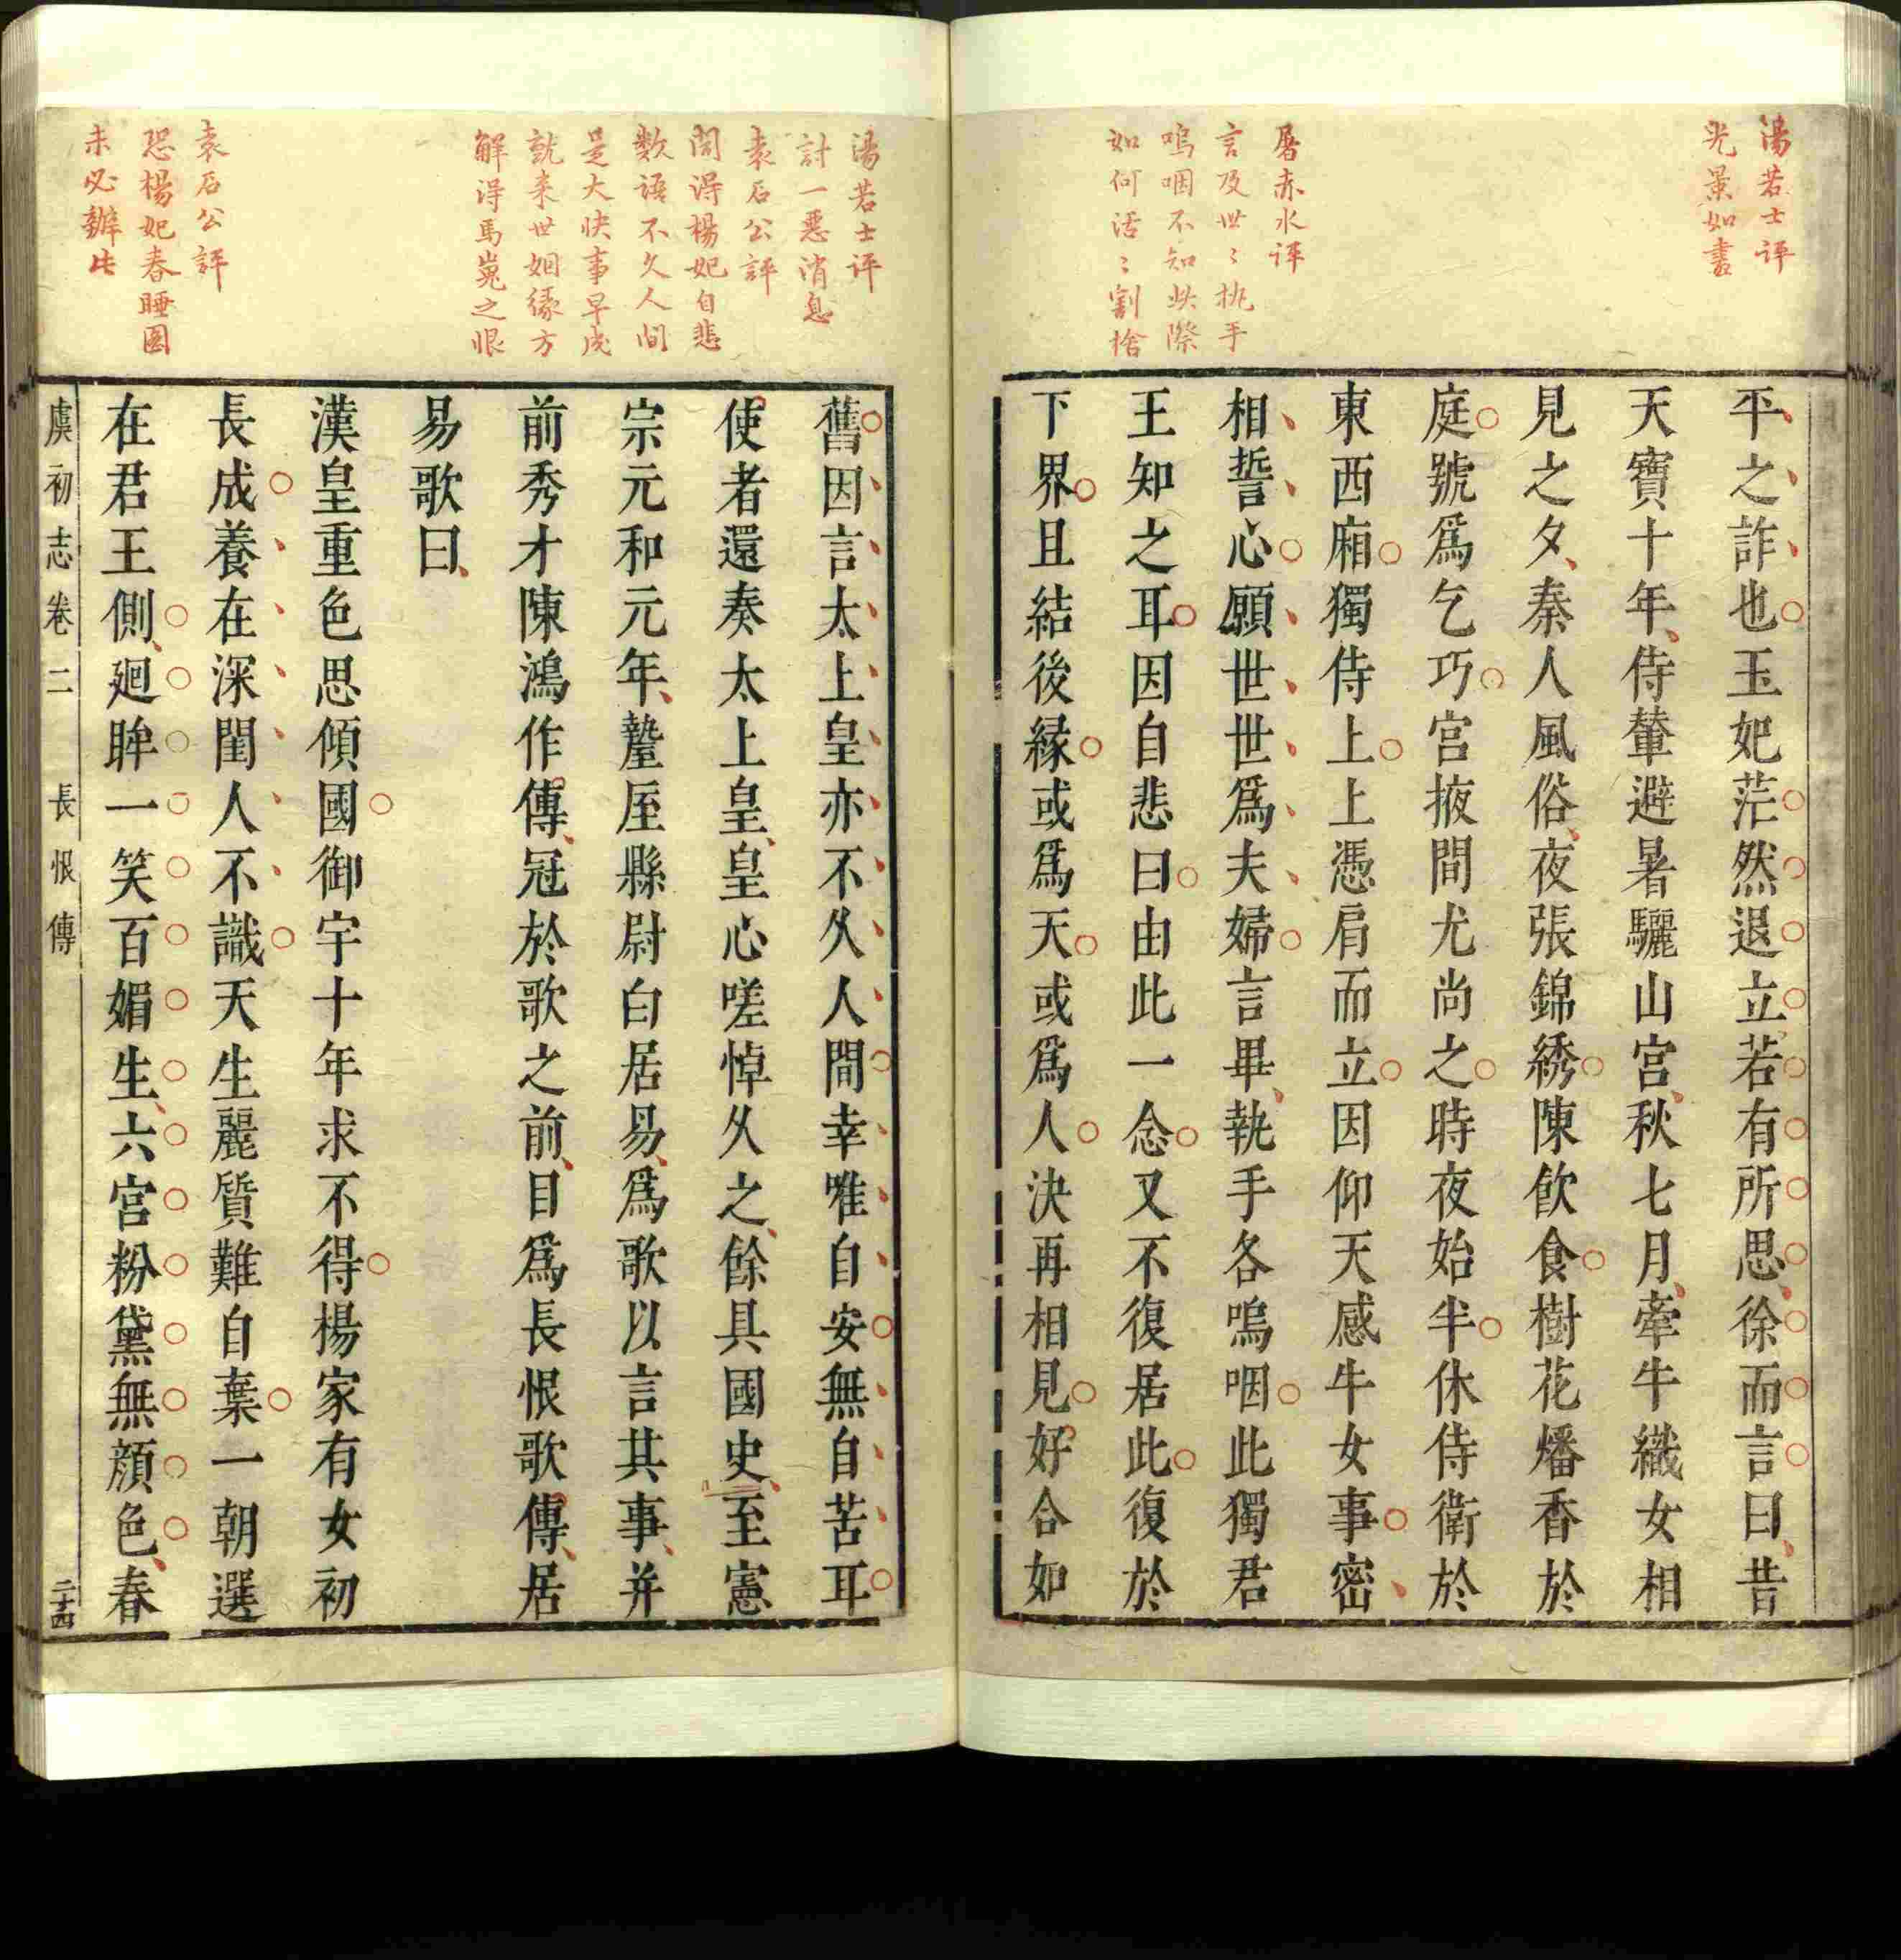 湯若士評
光景如畫
屠赤水評
言及世〻執手
嗚咽不知此際
如何活〻割捨
平之詐也玉妃茫然退立若有所思徐而言曰昔
天寶十年侍輦避暑驪山宮秋七月牽牛織女相
見之夕秦人風俗夜張錦綉陳飲食樹花燔香於
庭號爲乞巧宮掖間尤尚之時夜始半休侍衛於
東西廂獨侍上上憑肩而立因仰天感牛女事密
相誓心願世世爲夫婦言畢執手各嗚咽此獨君
王知之耳因自悲曰由此一念又不復居此復於
下界且結後緣或爲天或爲人決再相見好合如
湯若士評
討一惡消息
袁石公評
閱得楊妃自悲
數語不久人間
是大快事早成
就來世姻緣方
解得馬嵬之恨
袁石公評
恐楊妃春睡圖
未必辦此
舊因言太上皇亦不久人間幸唯自安無自苦耳
使者還奏太上皇皇心嗟悼久之餘具國史至憲
宗元和元年盩厔縣尉白居易爲歌以言其事并
前秀才陳鴻作傳冠於歌之前目爲長恨歌傳居
易歌曰
漢皇重色思傾國御宇十年求不得楊家有女初
長成養在深閨人不識天生麗質難自棄一朝選
在君王側廻眸一笑百媚生六宮粉黛無顏色春
虞初志卷二 長恨傳 二十四